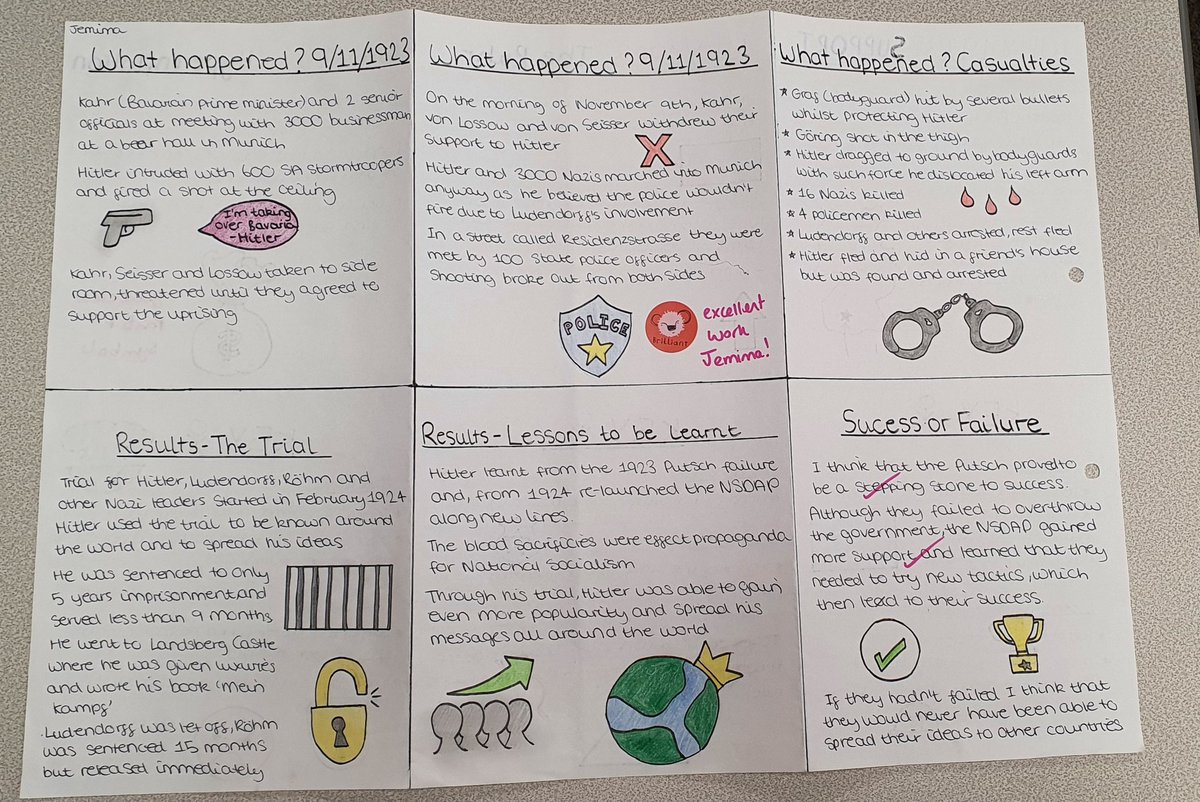 Jemima
What happened? 9/11/1923
Kahr (Bavarian prime minister) and 2 senior
officials at meeting with 3000 businessman
at a beer hall in Munich
Hitler intruded with 600 SA Stormtroopers
and fired a shot at the ceiling
I'm taking
over Bavaria
-Hitler
Kahr, Seisser and Lossow taken to side
room, threatened until they agreed to
support the uprising
What happened? 9/11/1923
On the morning of November 9th, Kahr,
von Lossow and von Seisser withdrew their
support to Hitler
Hitler and 3000 Nazis marched into Munich
anyway as he believed the police wouldn't
fire due to Ludendorff's involvement
In a street called Residenzstrasse they were
met by 100 State police officers and
shooting broke out from both sides
POLICE
Brilliant
excellent
work
Jemima!
What happened? Casualties
* Graf (bodyguard) hit by several bullets
whilst protecting Hitler
* Göring shot in the thigh
* Hitler dragged to ground by bodyguards
with such force he dislocated his left arm
* 16 Nazis killed
* 4 policemen killed
* Ludendorff and others arrested, rest fled
* Hitler fled and hid in a friend's house
but was found and arrested
Results-The Trial
Trial for Hitler, Ludendorff, Röhm and
other Nazi leaders started in February 1924
Hitler used the trial to be known around
the world and to spread his ideas
He was sentenced to only
5 years imprisonment and
served less than 9 months
He went to Landsberg Castle
where he was given luxuries
and wrote his book 'Mein
Kampf'
Ludendorff was let off, Röhm
was sentenced 15 months
but released immediately
Results-Lessons to be Learnt
Hitler learnt from the 1923 Putsch failure
and, from 1924 re-launched the NSDAP
along new lines.
The blood sacrificies were effect propaganda
for National Socialism
Through his trial, Hitler was able to gain
even more popularity and spread his
messages all around the world
Sucess or Failure
I think that the Putsch proved to
be a stepping stone to success.
Although they failed to overthrow
the government, the NSDAP gained
more support and learned that they
needed to try new tactics, which
then lead to their success.
If they hadn't failed I think that
they would never have been able to
spread their ideas to other countries